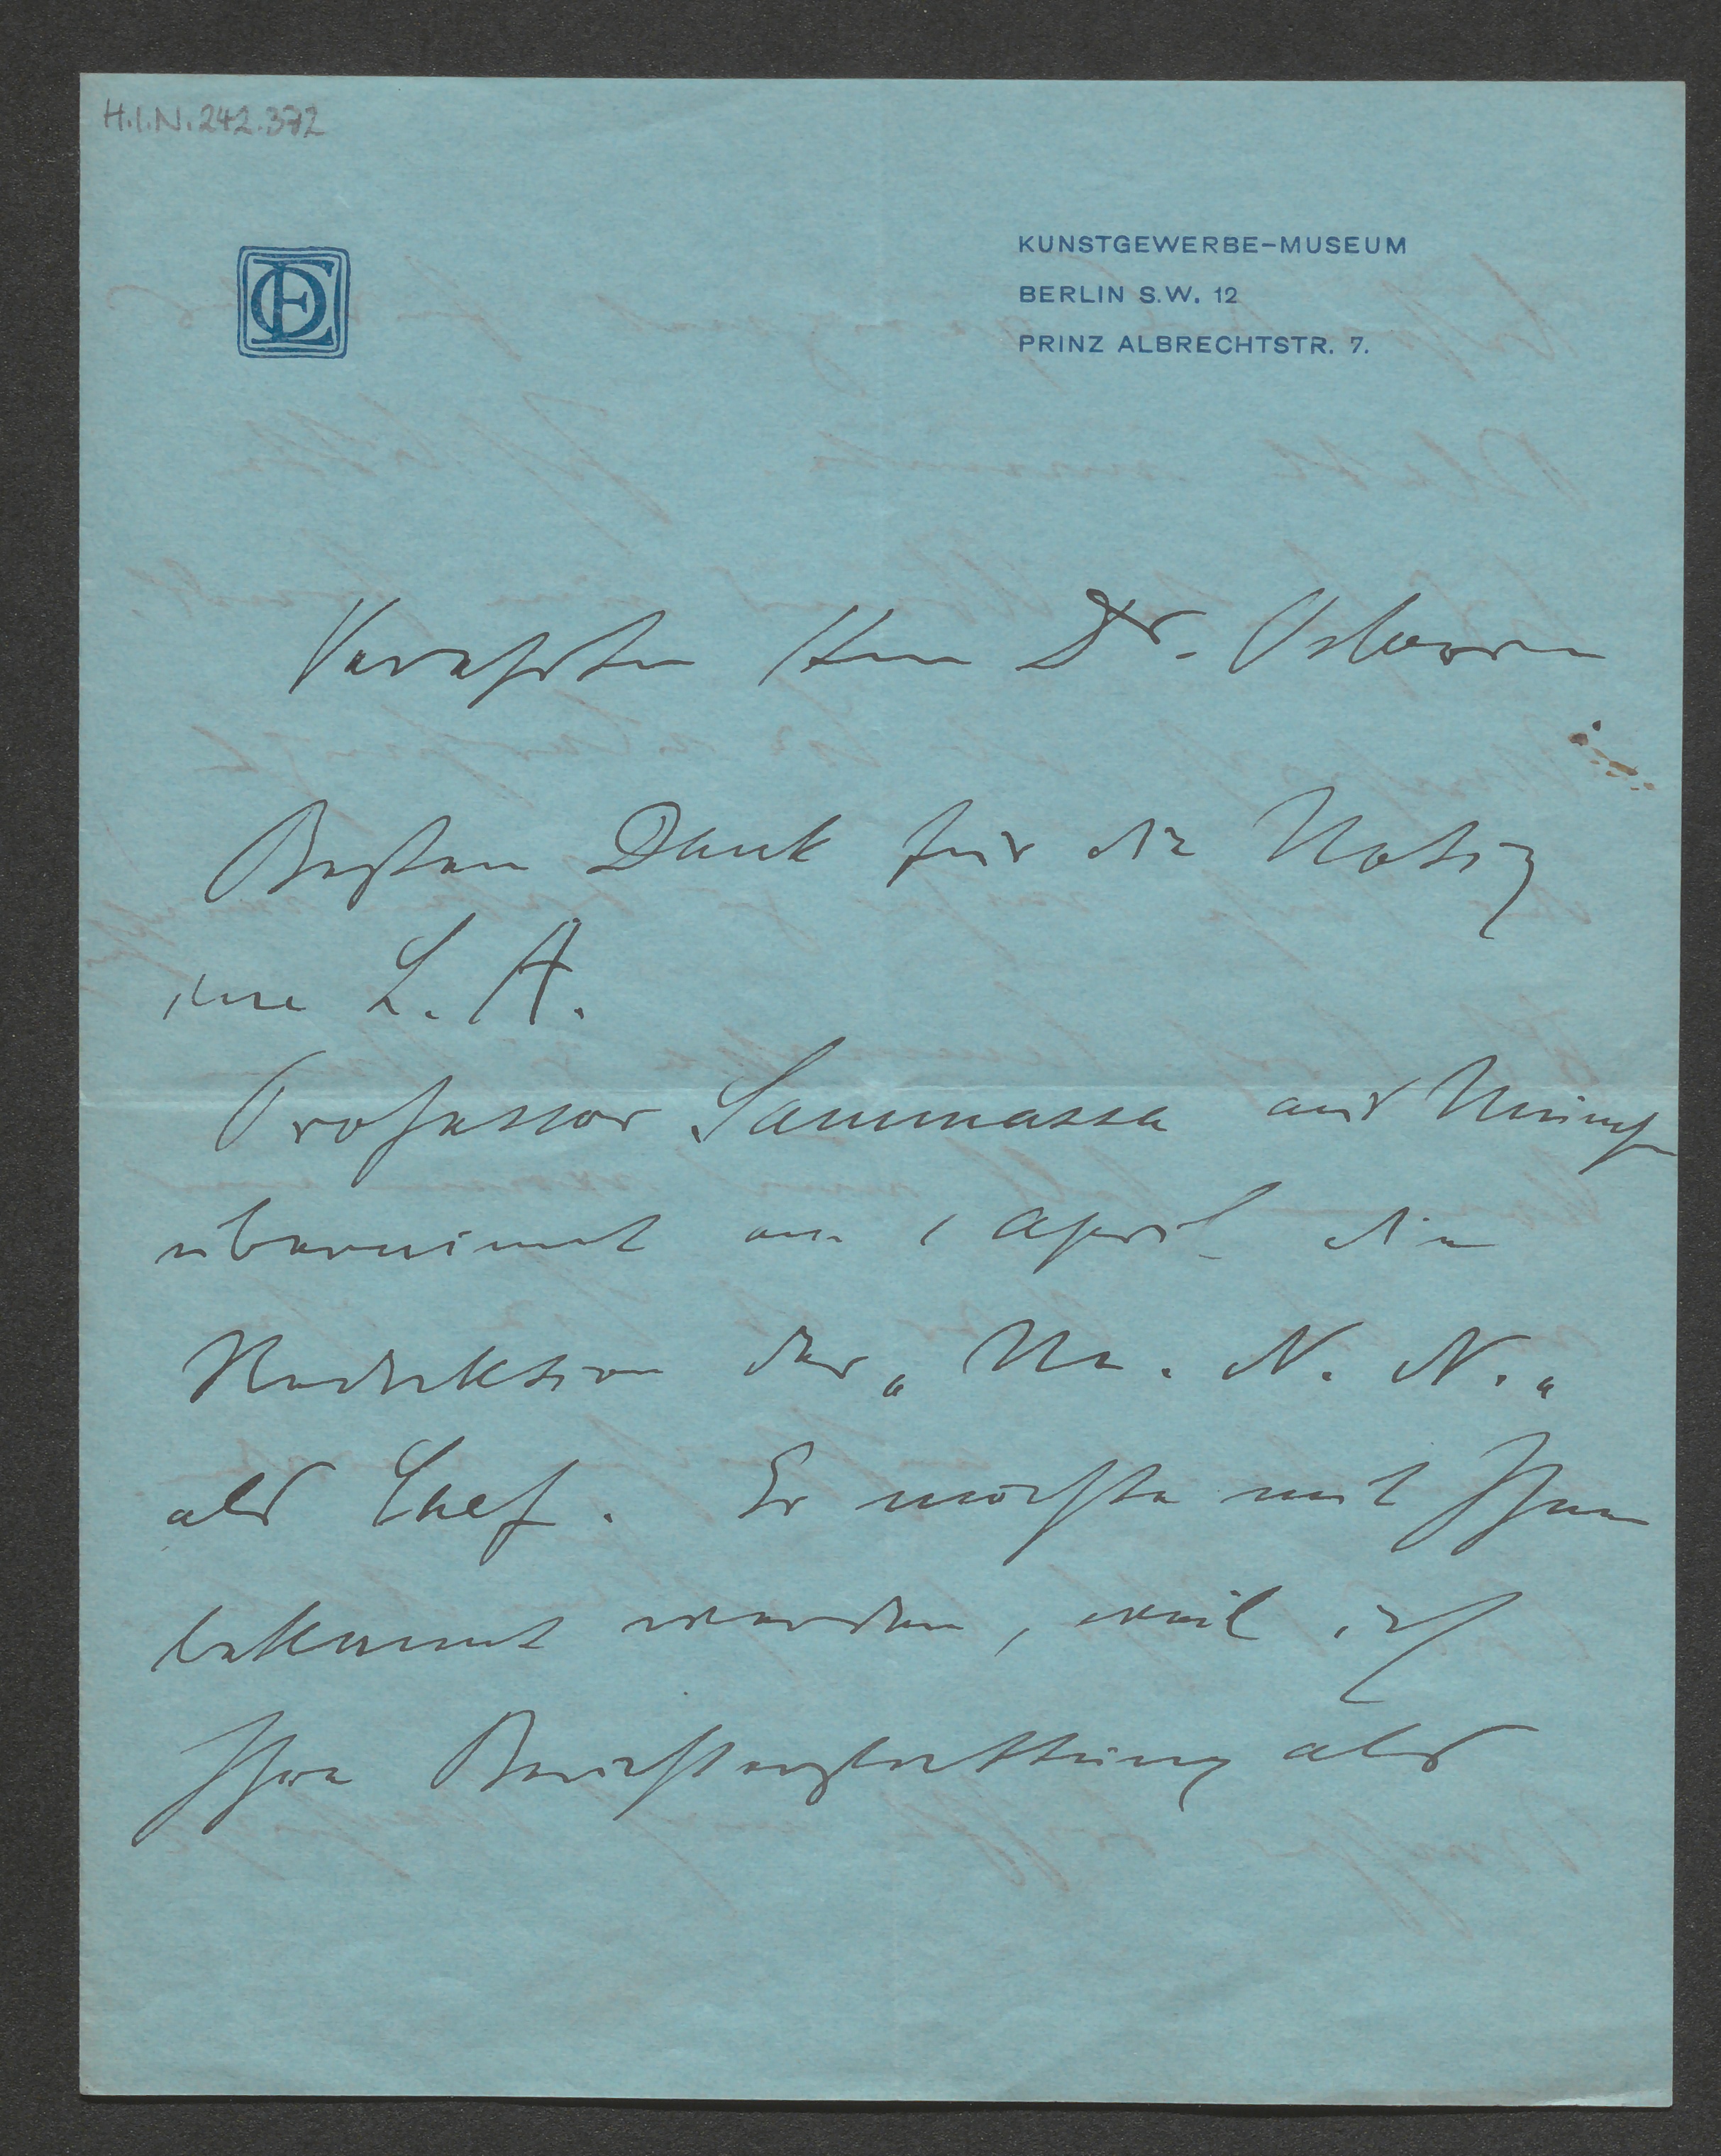 H.I.N. 242.372
KUNSTGEWERBE-MUSEUM
BERLIN S.W. 12
PRINZ ALBRECHTSTR. 7.
Verehrter Herr Dr. Osborn
Besten Dank für die Notiz
im L. A.
Professor Sammassa aus Münch
übernimmt am 1 April die
Redaktion der „M. N. N.„
als Chef. Er möchte mit Ihnen
bekannt werden, weil ich
Ihre Berichterstattung als